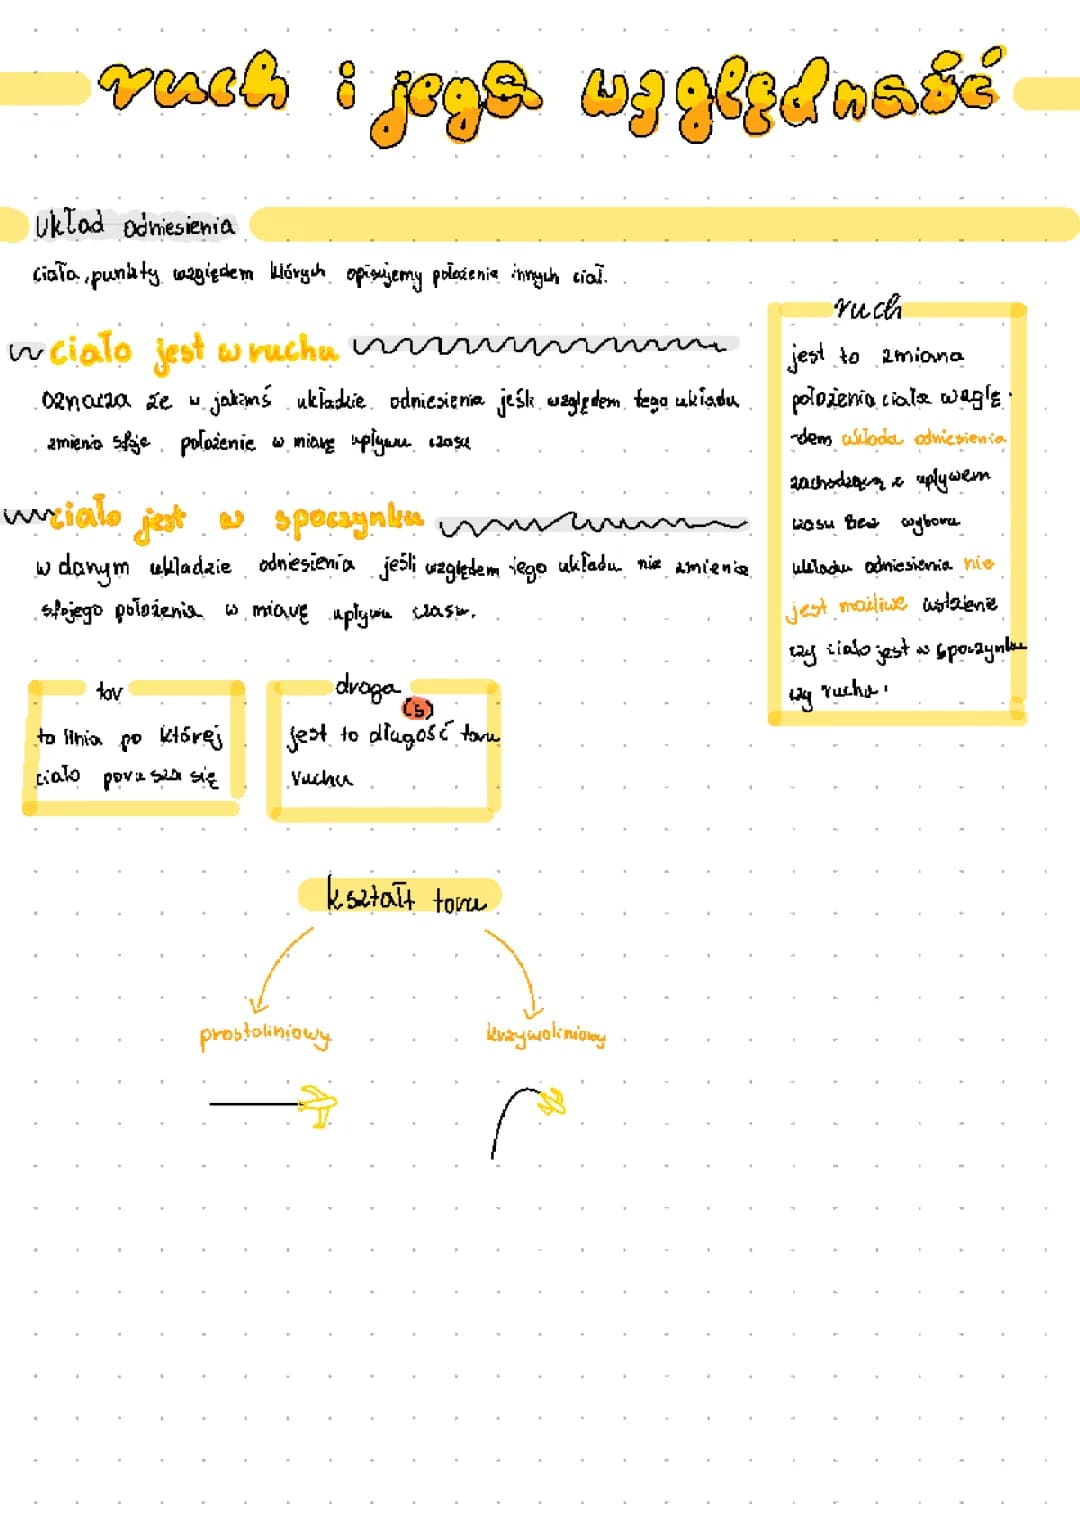 ruch i jego względność
Układ odniesienia
ciała, punkty względem których opisujemy położenie innych ciał.
ciało jest w ruchu
oznacza że w jakimś układzie odniesienia jeśli względem tego układu
zmienia swoje położenie w miarę upływu czasu
ciało jest w spoczynku
w danym układzie odniesienia jeśli względem tego układu nie zmienia
swojego położenia w miarę upływu czasu.
ruch
jest to zmiana
położenia ciała wzglę
-dem układa odniesienia
zachodzącą z upływem
czasu Bez wyboru
układu odniesienia nie
jest możliwe ustalenie
czy ciało jest w spoczynku
czy ruchu.
tor
to linia po której
ciało porusza się
droga
(s)
jest to długość toru
ruchu
kształt toru
prostoliniowy
krzywoliniowy